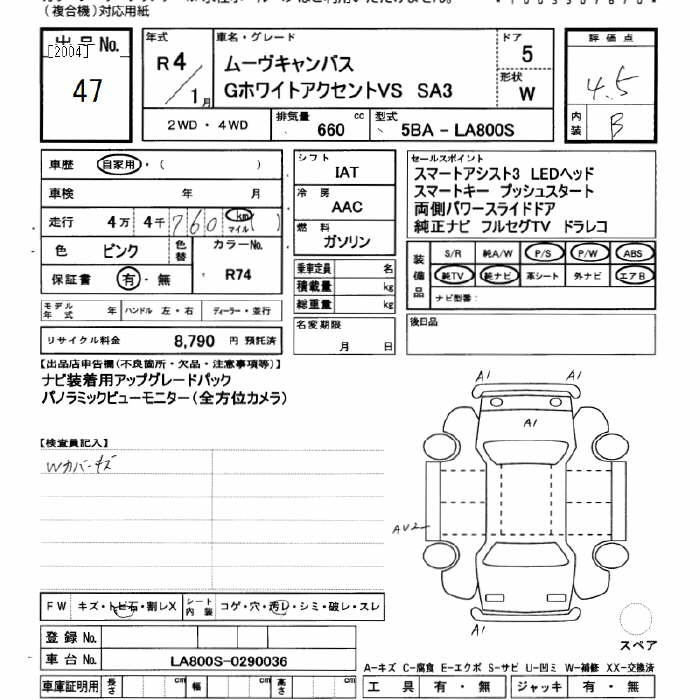 (複合機)対応用紙
出品No.
[2004]
47
年式
R4/1月
車名・グレード
ムーヴキャンバス
Gホワイトアクセントvs SA3
ドア
5
形状
W
評価点
4.5
内装
B
2WD・4WD
排気量 660 cc
型式 5BA-LA800S
車歴 自家用・( )
車検 年 月
走行 4万 4千 760 km マイル ( )
色 ピンク 色替 カラーNo. R74
保証書 有・無
モデル年式 年 ハンドル 左・右 ディーラー・並行
リサイクル料金 8,790 円 預託済
シフト
IAT
冷房
AAC
燃料
ガソリン
乗車定員 名
積載量 kg
総重量 kg
名変期限
月 日
セールスポイント
スマートアシスト3 LEDヘッド
スマートキー プッシュスタート
両側パワースライドドア
純正ナビ フルセグTV ドラレコ
装備品
S/R 純A/W P/S P/W ABS
純TV 純ナビ 革シート 外ナビ エアB
ナビ型番:
後日品
【出品店申告欄(不良箇所・欠品・注意事項等)】
ナビ装着用アップグレードパック
パノラミックビューモニター(全方位カメラ)
【検査員記入】
Wカバーキズ
A1 A1
A1
AU2
A1
スペア
FW キズ・トビ石・割レX シート内装 コゲ・穴・汚レ・シミ・破レ・スレ
登録No.
車台No. LA800S-0290036
車庫証明用 長さ cm 幅 cm 高さ cm
A-キズ C-腐食 E-エクボ S-サビ U-凹ミ W-補修 XX-交換済
工具 有・無 ジャッキ 有・無